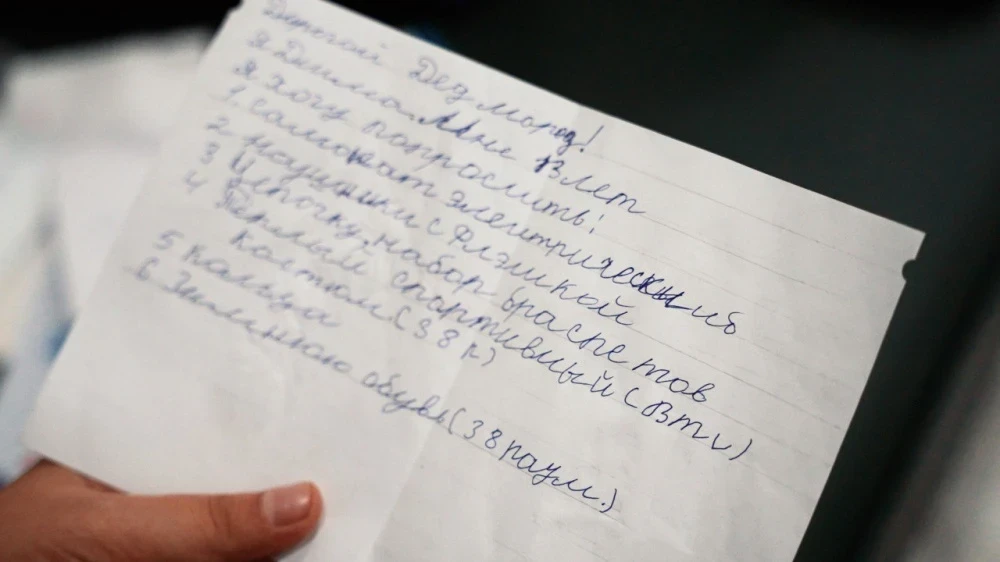 Дорогой Дед мороз!
Я Дима. Мне 13 лет
Я хочу попросить:
1. самокат электрический
2 наушники с флэшкой
3 Цепочку, набор браслетов
4 Теплый спортивный (
костюм (38 р)
5 кольца
6. Зимнюю обувь (38 разм.)